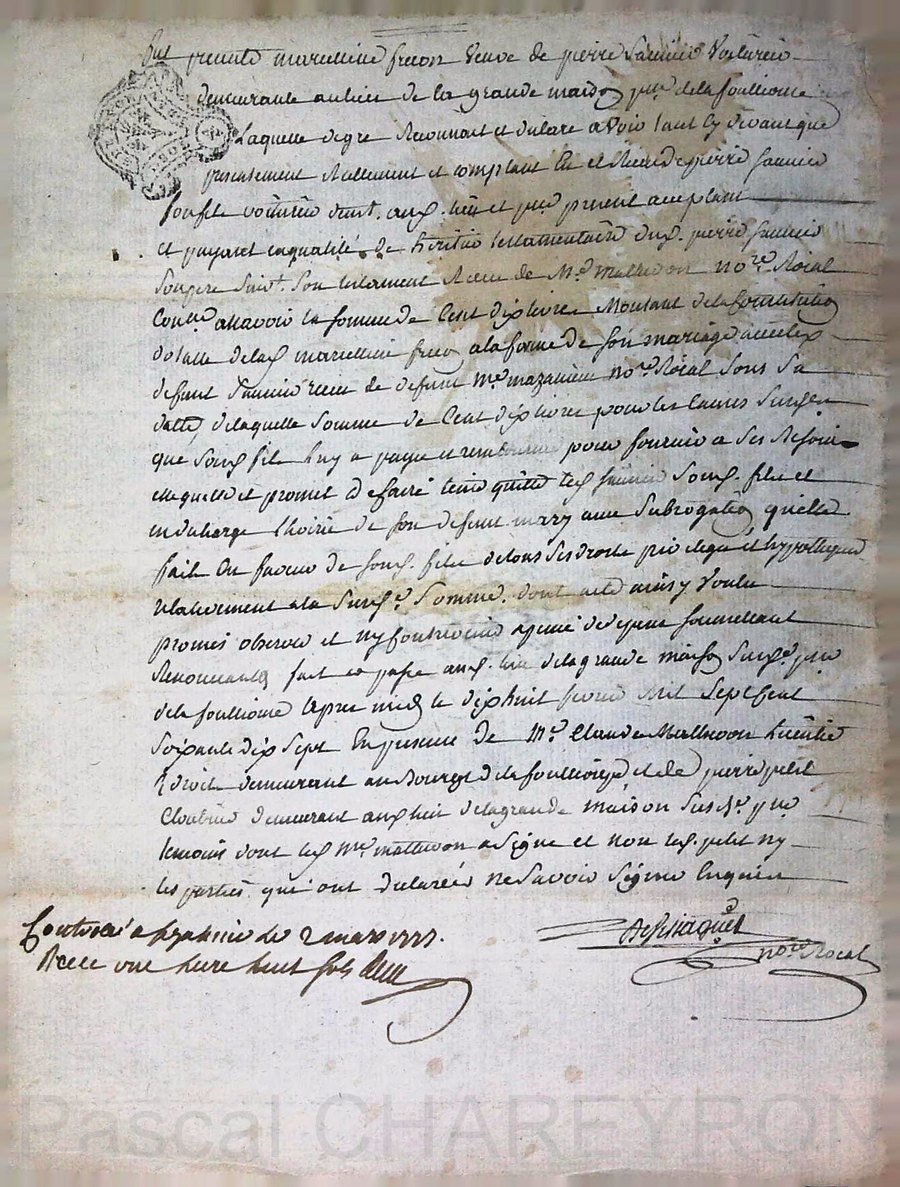 fut presente marcelline frecon veuve de pierre faurier voiturier
demeurante au lieu de la grande maison psse de la foulliouse
Laquelle de gré Reconnoit et declare avoir tant cy devant que
presentement Reellement et comptant Eu et Receu de pierre faurier
son fils voiturier demt. aud. lieu et psse present acceptant
et payant en qualité de heritier testamentaire dud. pierre faurier
son pere suivt. son testament Receu de Me mathevon nore Roial
Conle assavoir la somme de Cent dix livres Montant de la Constitution
dotalle de lad marcelline frecon a la forme de son mariage avec led
defunt faurier Receu de defunt Me mazenieu nore Roial sous sa
datte, de laquelle somme de Cent dix livres pour les causes susd.
que sond fils luy a payé et remboursé pour fournir a ses Besoins
elle quitte et promet de faire tenir quitte led faurier sond. fils et
en decharge l'hoirie de son defunt mary avec subrogation quelle
fait En faveur de sond. fils de tous ses droits privilege et hypotheques
relativement a la susde. somme. dont acte ainsy voulu
promis observer et ny contrevenir a peine depens soumettant
Renonceants fait et passé aud. lieu de la grande maison susde. psse
de la foulliouse apres midy le dixhuit fevrier Mil Sept Cent
soixante dix sept En presence de Me. Claude Mathevon licentié
Es droit demeurant au Bourg de la foulliouse et de pierre petit
cloutier demeurant aud lieu de la grande maison susde. psse
temoins dont led Me. mathevon a signé et non led. petit ny
les parties qui ont declarées ne savoir signer Enquis
nore Roial
Controlé a le 2 mars 1777.
Receu une livre huit sols
Pascal CHAREYRON